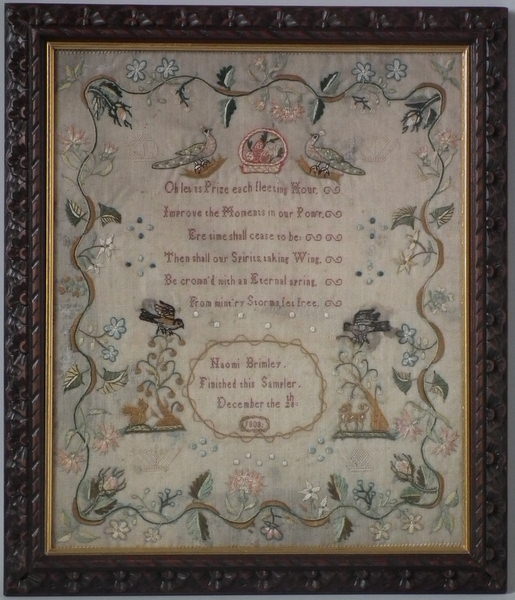 Oh let us Prize each fleeting Hour,
Improve the Moments in our Power,
Ere time shall cease to be;
Then shall our Spirits taking Wing,
Be crown'd with an Eternal spring,
From wint'ry Storms, set free.
Naomi Brimley.
Finished this Sampler.
December the 28th
1808